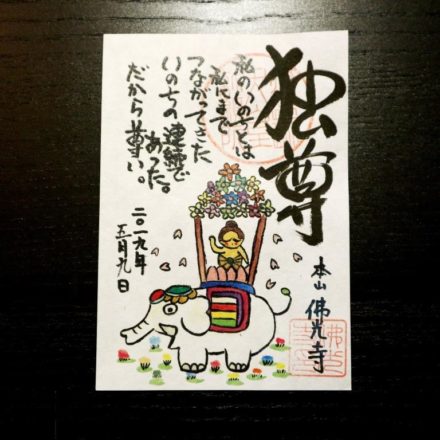 独尊
私のいのちとは
私にまで
つながってきた
いのちの連続で
あった。
だから尊い。
二〇一九年
五月九日
本山 佛光寺